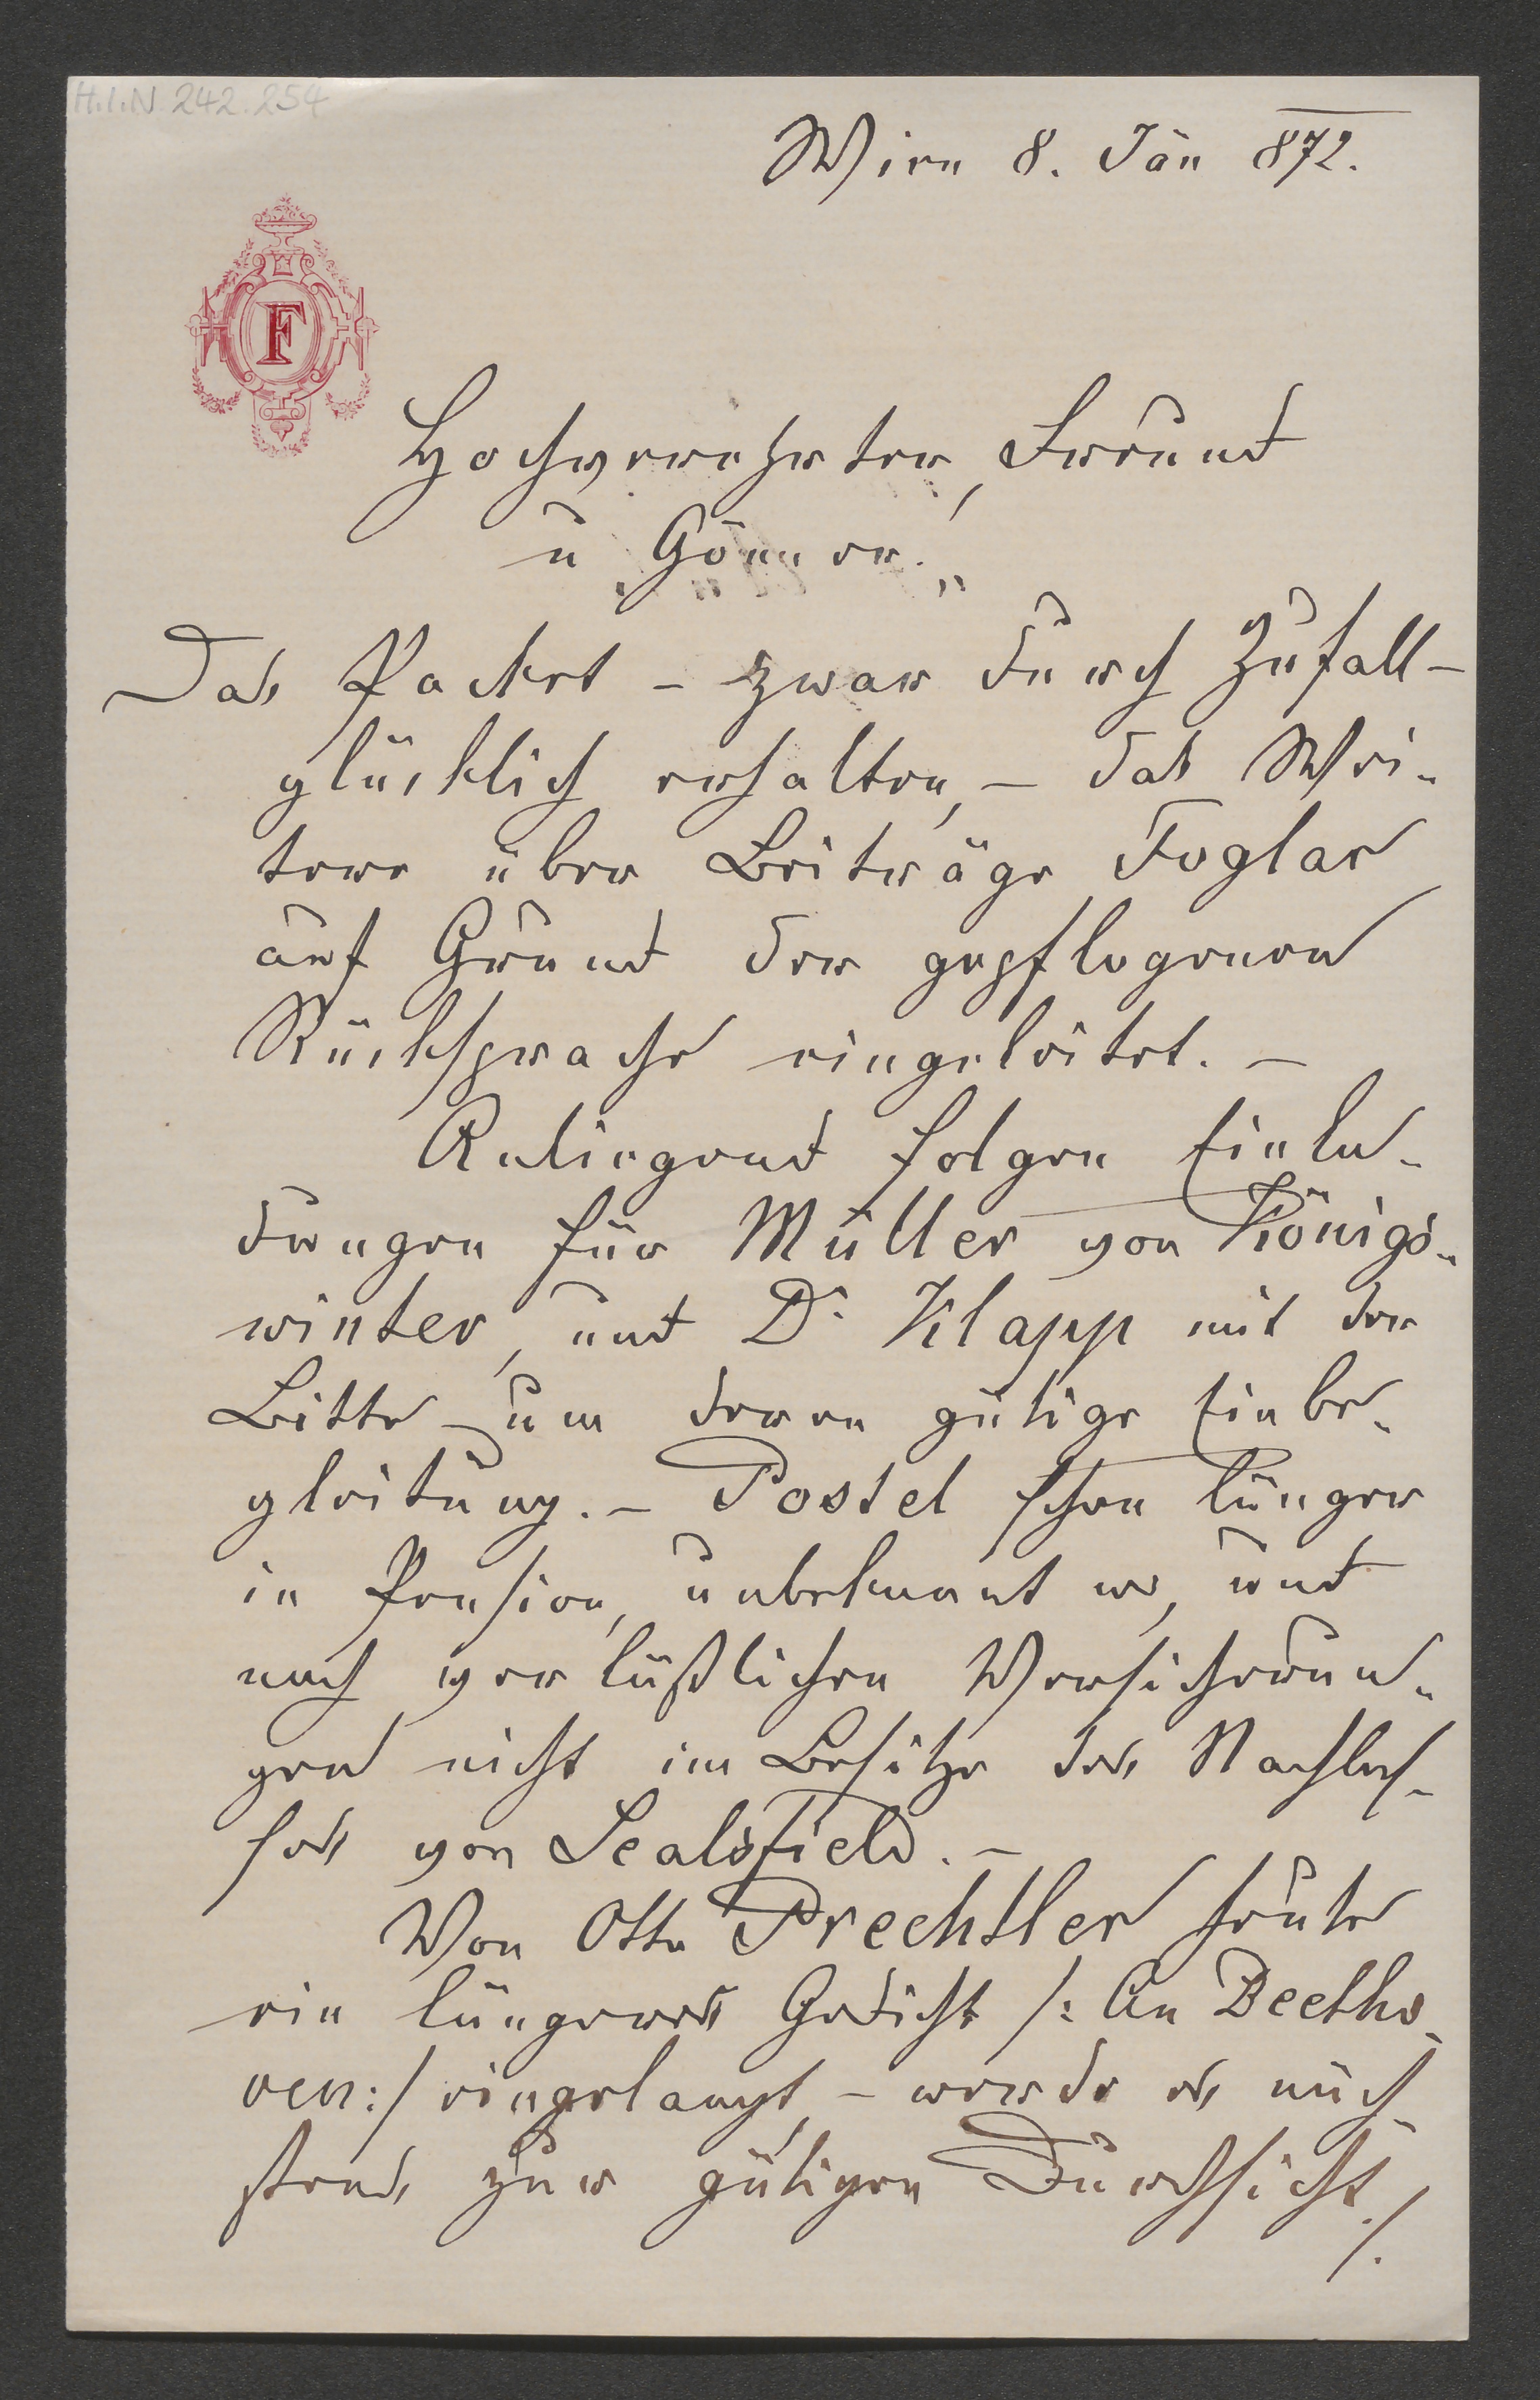 H.I.N. 242.254
Wien 8. Jän 872.
F
Hochverehrter Freund
u Gönner!
Das Packet – zwar durch Zufall –
glücklich erhalten, – das Wei-
tere über Beiträge Foglar
auf Grund der gepflogenen
Rücksprache eingeleitet. –
Anliegend folgen Einla-
dungen für Müller von Königs-
winter, und Dr Klapp mit der
Bitte um deren gütige Einbe-
gleitung. – Postel schon länger
in Pension, unbekannt wo, und
nach verläßlichen Versicherun-
gen nicht im Besitze des Nachlas-
ses von Sealsfield. –
Von Otto Prechtler heute
ein längeres Gedicht /: An Beetho-
ven :/ eingelangt, – werde es näch-
stens zur gütigen Durchsicht
/.